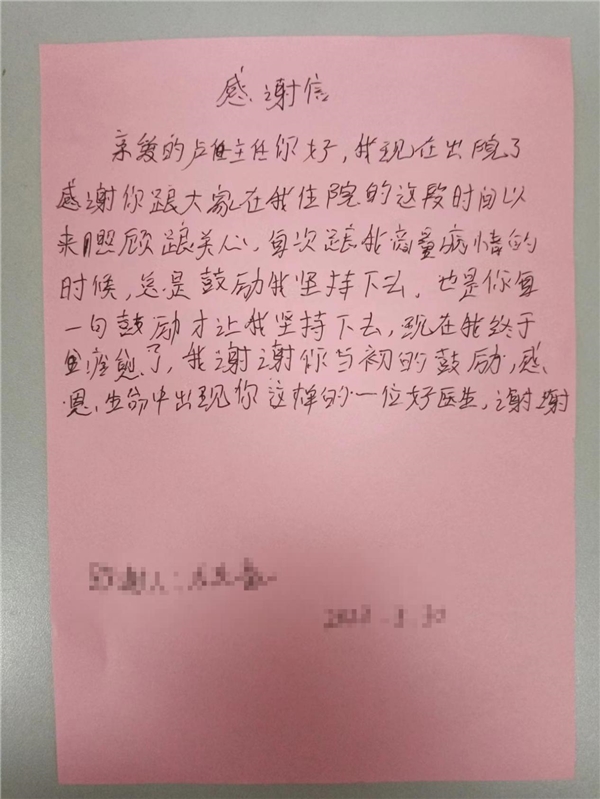 感谢信
亲爱的卢主任你好，我现在出院了
感谢你跟大家在我住院的这段时间以
来照顾跟关心，每次跟我商量病情的
时候，总是鼓励我坚持下去，也是你每
一句鼓励才让我坚持下去，现在我终于
痊愈了，我谢谢你当初的鼓励，感
恩生命中出现你这样的一位好医生，谢谢